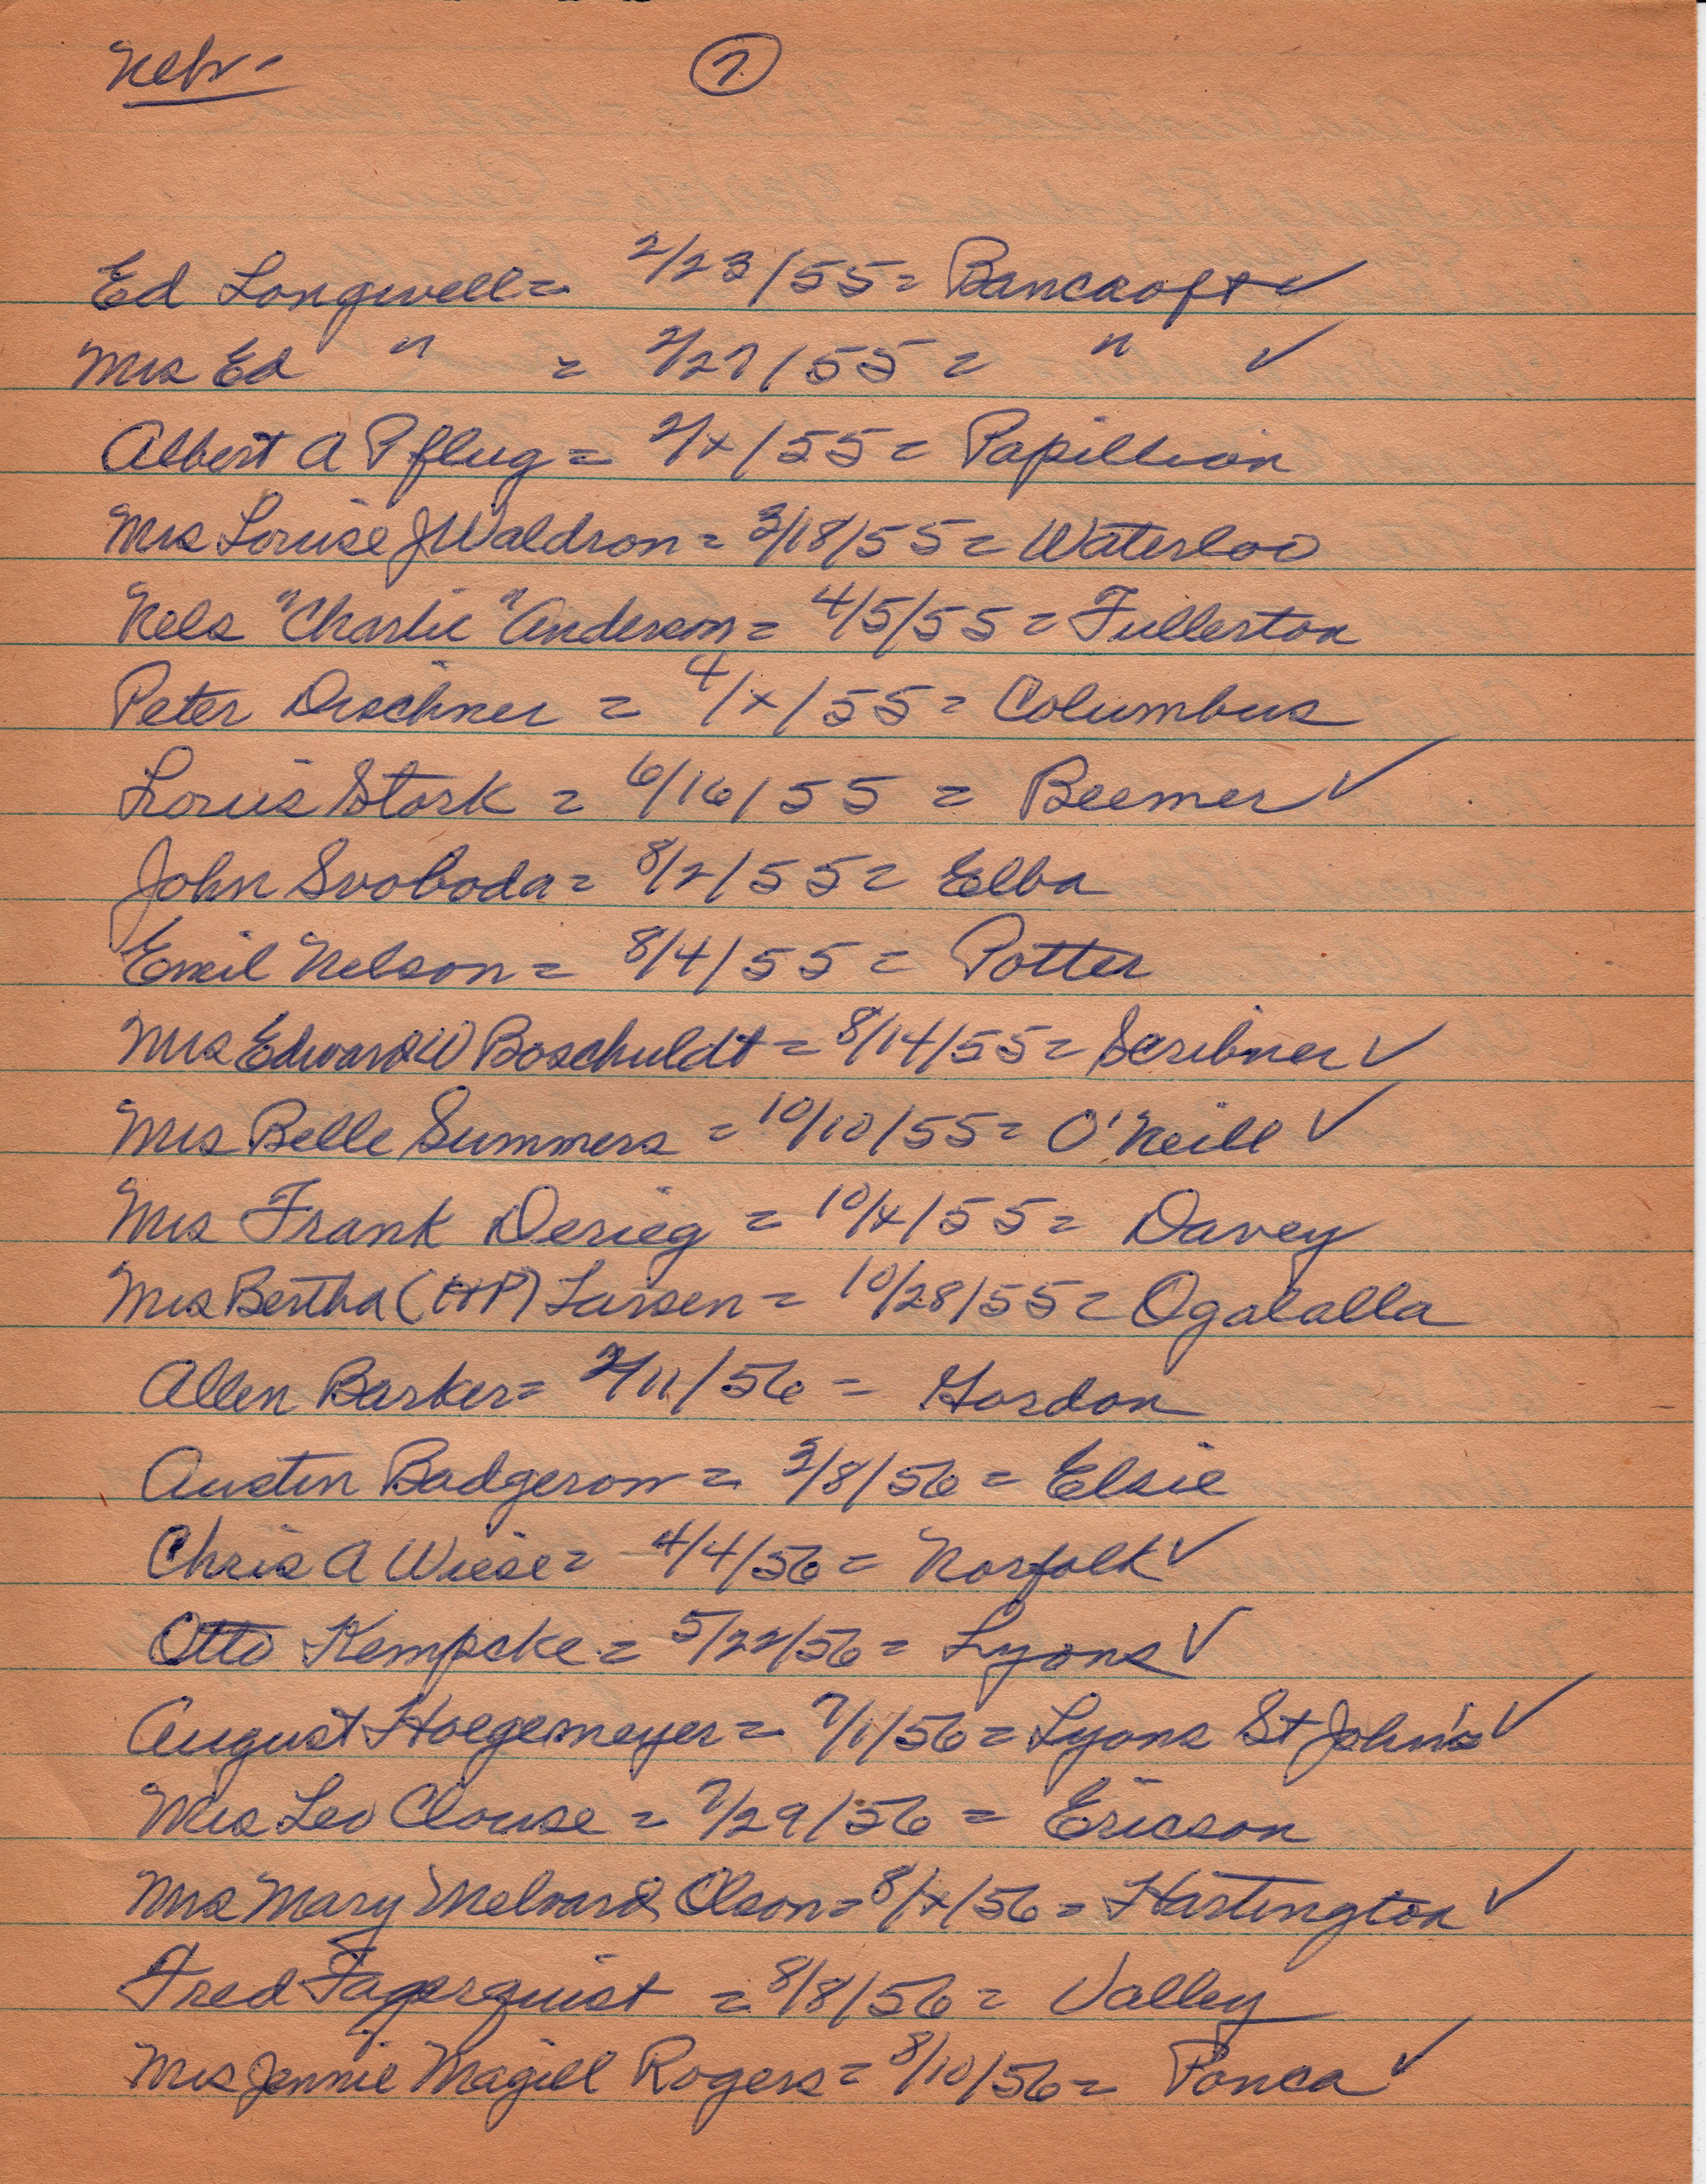 Nebr. 7.
Ed Longwell = 2/23/55 = Bancroft ✓
Mrs Ed " = 2/27/55 = " ✓
Albert A Pflug = 2/x/55 = Papillion
Mrs Louise J Waldron = 3/18/55 = Waterloo
Nels "Charlie" Anderson = 4/5/55 = Fullerton
Peter Dischner = 4/x/55 = Columbus
Louis Stork = 6/16/55 = Beemer ✓
John Svoboda = 8/2/55 = Elba
Emil Nelson = 8/4/55 = Potter
Mrs Edward W Boschuldt = 8/14/55 = Scribner ✓
Mrs Belle Summers = 10/10/55 = O'Neill ✓
Mrs Frank Derieg = 10/x/55 = Davey
Mrs Bertha (HP) Larsen = 10/28/55 = Ogalalla
Allen Barker = 2/11/56 = Gordon
Austin Badgerow = 3/8/56 = Elsie
Chris A Wiese = 4/4/56 = Norfolk ✓
Otto Kempcke = 5/22/56 = Lyons ✓
August Hoegemeyer = 7/1/56 = Lyons St John's ✓
Mrs Leo Clouse = 7/29/56 = Ericson
Mrs Mary Melvard Olson = 8/x/56 = Hartington ✓
Fred Fagerquist = 8/8/56 = Valley
Mrs Jennie Magill Rogers = 8/10/56 = Ponca ✓